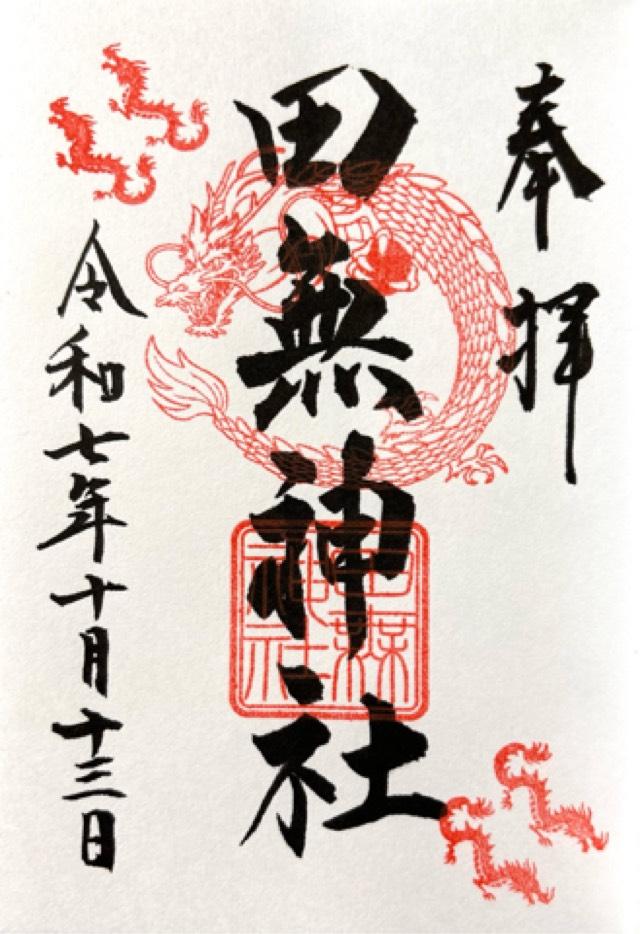 奉拝
田無神社
田無神社
令和七年十月十三日